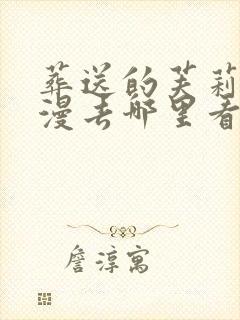 葬送的芙莉
漫去哪里看
詹淳寓